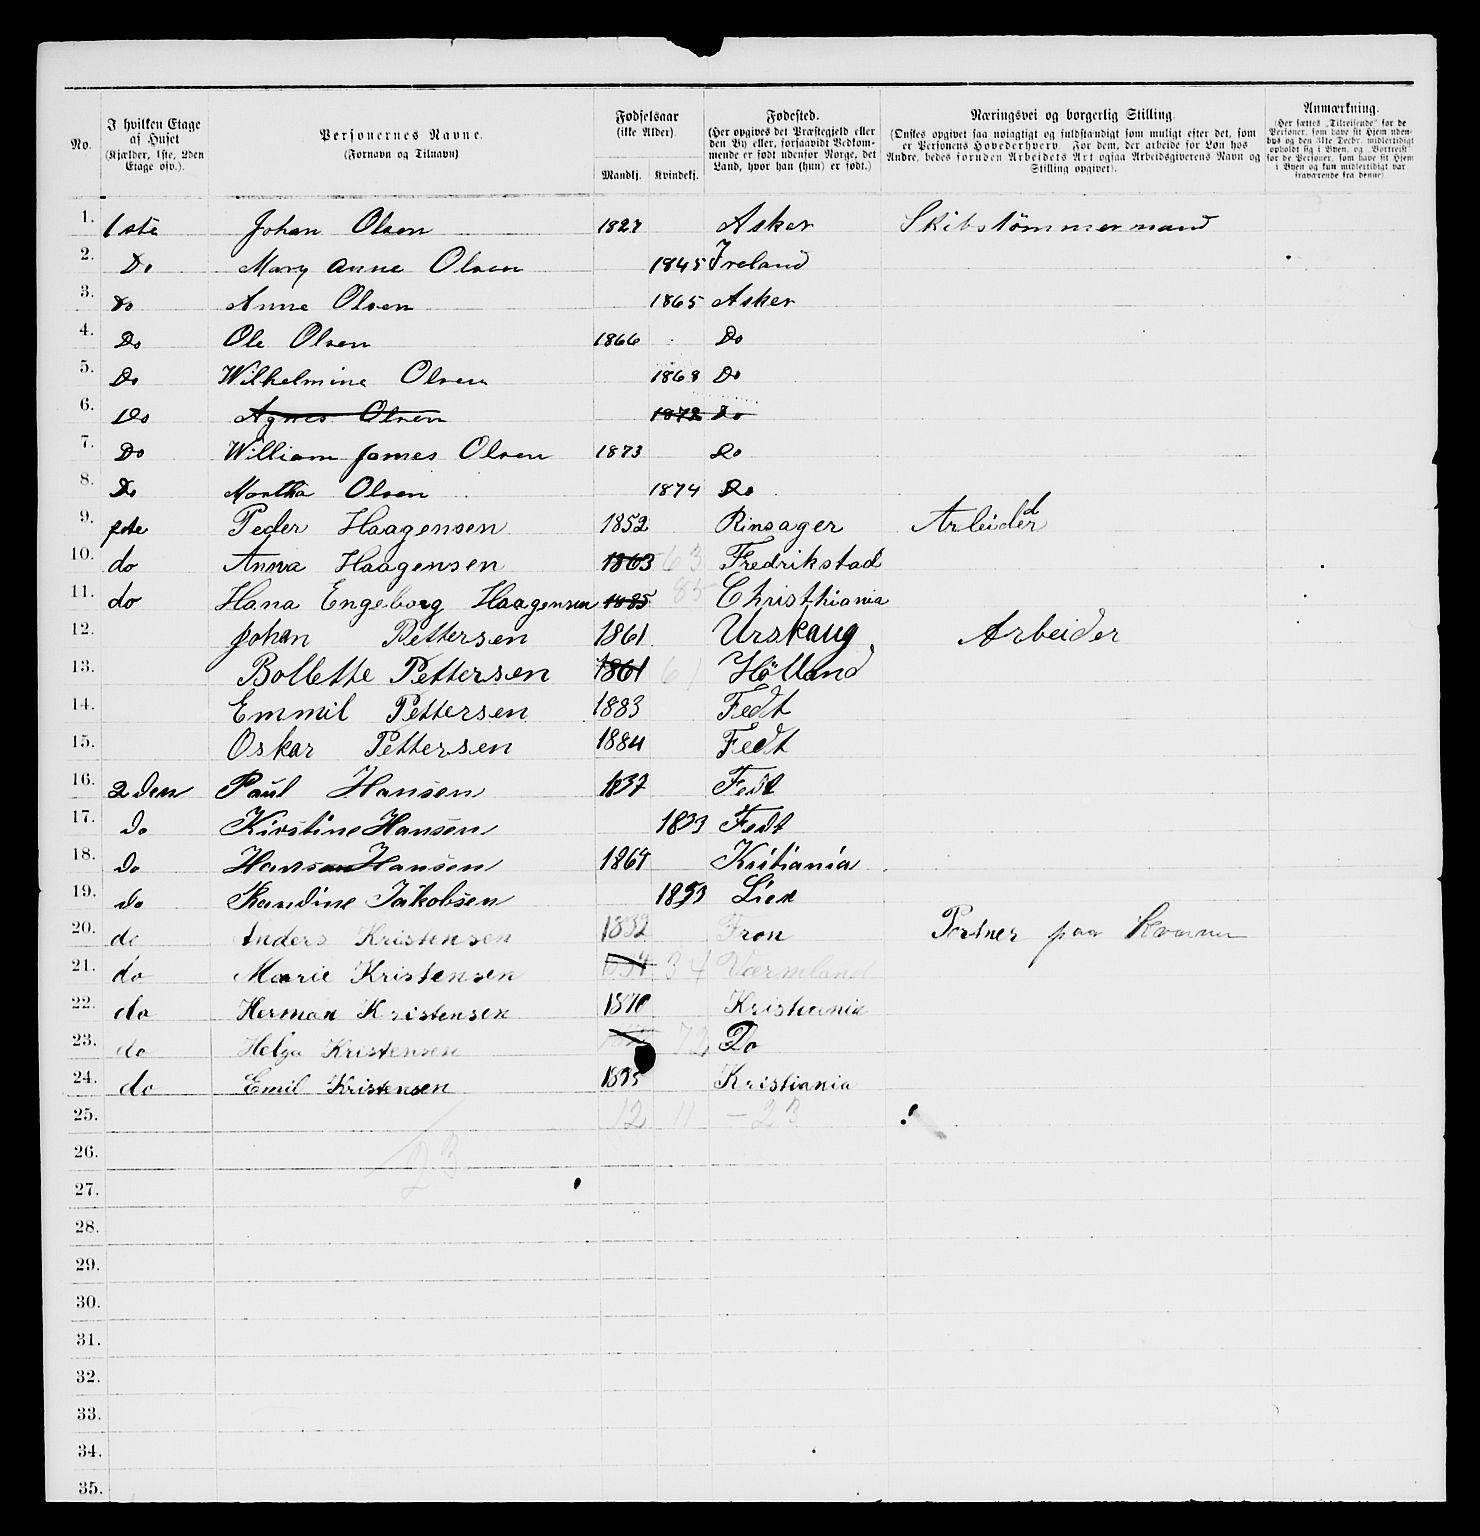 No. I hvilken Etage af Huset (Kjælder, 1ste, 2den Etage osv.). Personernes Navne. (Fornavn og Tilnavn) Fødselsaar (ikke Alder) Mandkj. Kvindekj. Fødested. (Her opgives det Præstegjeld eller den By eller, forsaavidt Vedkommende er født udenfor Norge, det Land, hvor han (hun) er født.) Næringsvei og borgerlig Stilling. (Ønskes opgivet saa nøiagtigt og fuldstændigt som muligt efter det, som er Personens Hovederhverv. For dem, der arbeide for Løn hos Andre, bedes foruden Arbeidets Art ogsaa Arbeidsgiverens Navn og Stilling opgivet). Anmærkning. (Her sættes „Tilreisende" for de Personer, som have sit Hjem udenbys og den 31te Decbr. midlertidigt opholdt sig i Byen, og „Bortreist" for de Personer, som have sit Hjem i Byen og kun midlertidigt var fraværende fra denne)
1. 1ste Johan Olsen 1827 Asker Skibstømmermand
2. Do Mary Anne Olsen 1845 Ireland
3. Do Anne Olsen 1865 Asker
4. Do Ole Olsen 1866 Do
5. Do Wilhelmine Olsen 1868 Do
6. Do Agnes Olsen 1872 Do
7. Do William James Olsen 1873 Do
8. Do Martha Olsen 1874 Do
9. Peder Haagensen 1852 Rinsager Arbeider
10. do Anna Haagensen 1863 63 Fredrikstad
11. do Hana Engeborg Haagensen 1885 85 Christhiania
12. Johan Pettersen 1861 Urskaug Arbeider
13. Bollette Pettersen 1861 61 Hölland
14. Emmil Pettersen 1883 Fedt
15. Oskar Pettersen 1884 Fedt
16. 2den Paul Hansen 1837 Fedt
17. Do Kirstine Hansen Fedt
18. Do Hans Hansen 1864 Kritiania
19. do Jakobsen 1853 Lier
20. do Anders Kristensen 1832 Fron Portner paa
21. do Marie Kristensen 34 Værmland
22. do Herman Kristensen 1870 Kristiania
23. do Helga Kristensen 72 Do
24. do Emil Kristensen 1875 Kristiania
25. 12 11 – 23
26. 23
27.
28.
29.
30.
31.
32.
33.
34.
35.